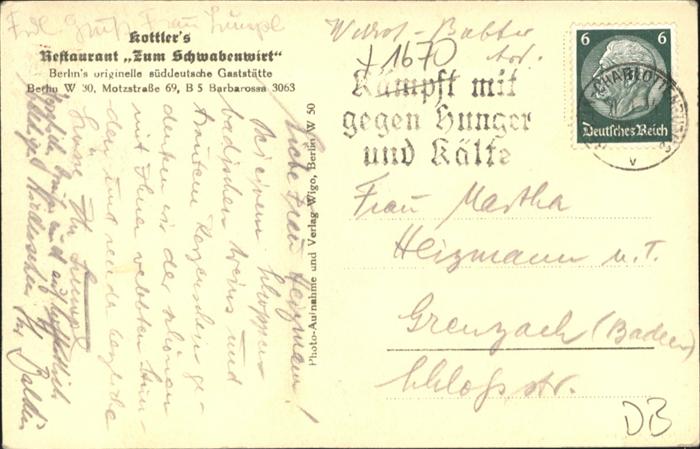 Frdl. Grüße Frau Stumpl
Kottler's
Restaurant „Zum Schwabenwirt“
Berlin's originelle süddeutsche Gaststätte
Berlin W 30, Motzstraße 69, B 5 Barbarossa 3063
Liebe Frau Heizmann!
Bei einem Schoppen
badischen Weins und
trautem Kerzenschein ge-
denken wir der schönen
mit Ihnen verlebten Stun-
den und senden herzliche
Grüße Ihr Stumpl
Photo-Aufnahme und Verlag Wigo, Berlin W 50
+ 1670
Kämpft mit
gegen Hunger
und Kälte
6 6
Deutsches Reich
CHARLOTTENBURG
v
Frau Martha
Heizmann u.T.
Grenzach (Baden)
Schloßstr.
DB